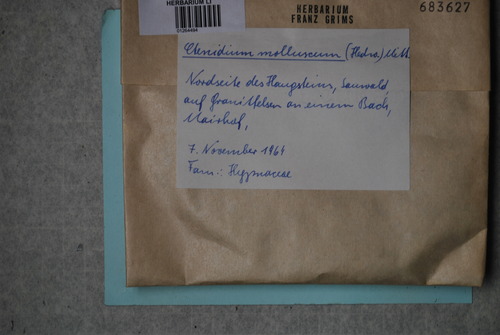 HERBARIUM LI
HERBARIUM
FRANZ GRIMS
683627
Ctenidium molluscum (Hedw.) Mitt.
Nordseite des Haugsteins, Sauwald,
auf Granitfelsen an einem Bach,
Mairhof,
7. November 1964
Fam.: Hypnaceae